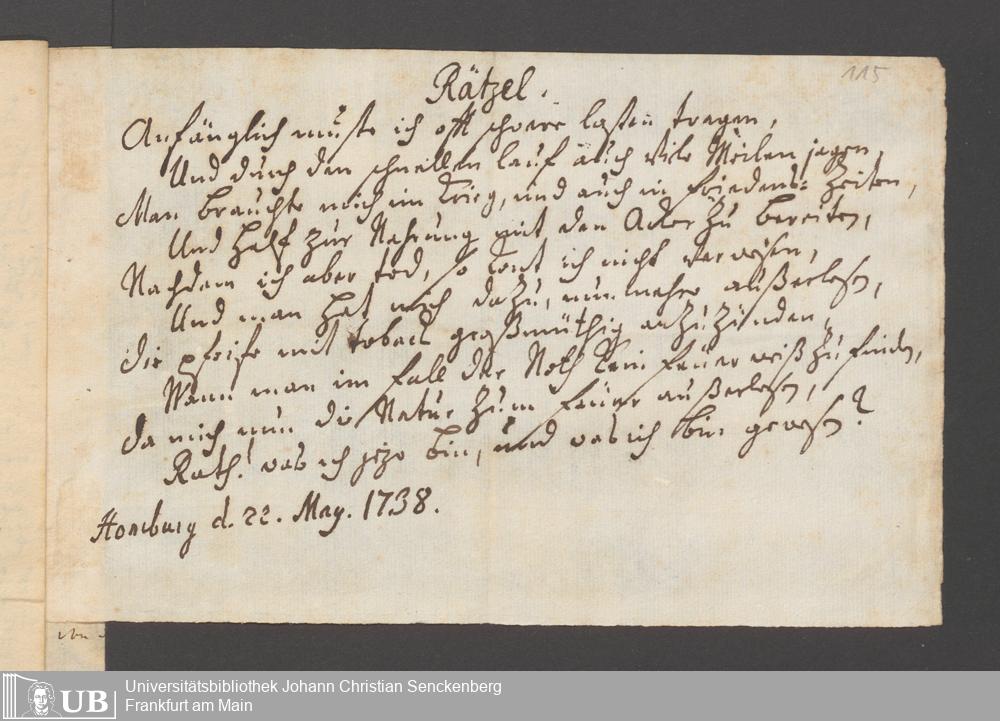 115
Rätzel.
Anfänglich muste ich offt schwere lasten tragen,
Und durch den schnellen lauf auch viele Meilen jagen,
Man brauchte mich im Krieg, und auch in friedens-Zeiten,
Und half zur Nahrung mit den Acker zu bereiten,
Nachdem ich aber tod, so kont ich nicht verwesen,
Und man hat mich dazu, nunmehro außerlesen,
die pfeife mit toback großmüthig anzuzünden,
Wann man im fall der Noth kein feüer weiß zu finden,
da mich nun die Natur zum feüer außerlesen,
Rath! was ich jezo bin, und was ich bin gewesen?
Homburg d. 22. May. 1738.
UB
Universitätsbibliothek Johann Christian Senckenberg
Frankfurt am Main